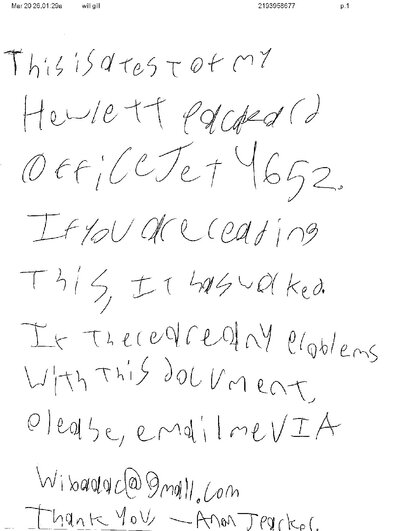 Mar 20 26,01:29a will gill 2193958677 p.1
This is a test of my
Hewlett Packard
OfficeJet 4652.
If you are reading
This, It has worked.
If there are any problems
with this document,
please, email me VIA
@gmail.com
Thank You, —